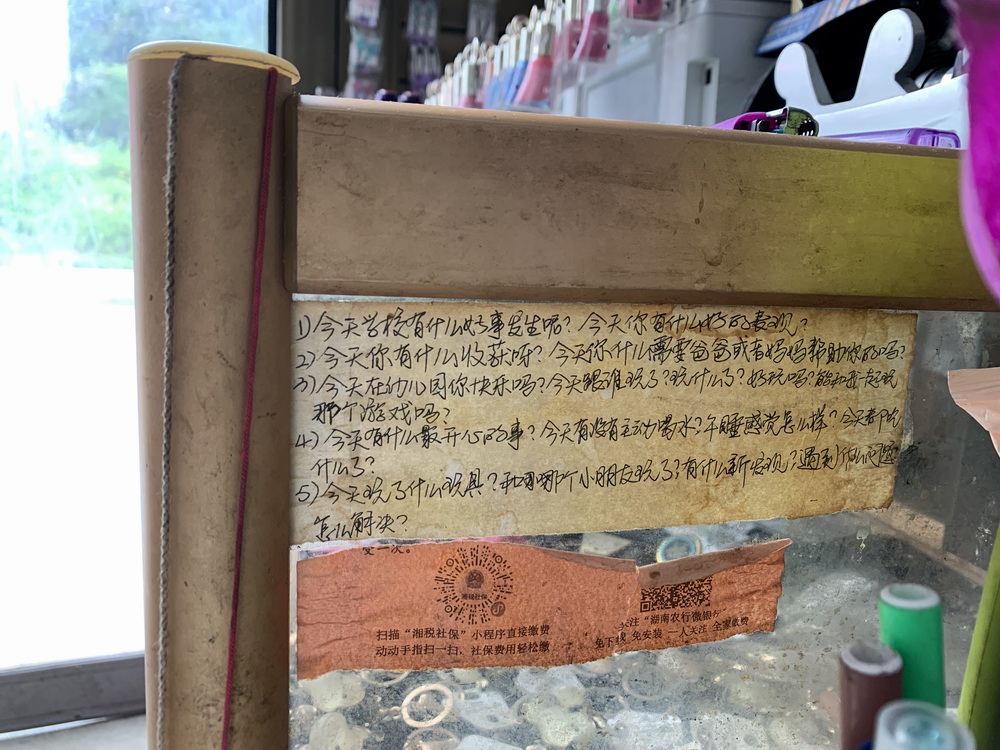 1) 今天学校有什么好事发生呢? 今天你有什么好的表现?
2) 今天你有什么收获呀? 今天你什么需要爸爸或者妈妈帮助你的吗?
3) 今天在幼儿园你快乐吗? 今天跟谁玩了? 玩什么了? 好玩吗? 能和我一起玩
那个游戏吗?
4) 今天有什么最开心的事? 今天有没有主动喝水? 午睡感觉怎么样? 今天都吃
什么了?
5) 今天玩了什么玩具? 和哪个小朋友玩了? 有什么新发现? 遇到什么问题
怎么解决?
变一次。
湘税社保
扫描“湘税社保”小程序直接缴费
动动手指扫一扫, 社保费用轻松缴
关注“湖南农行微银行
免下载 免安装 一人关注 全家缴费